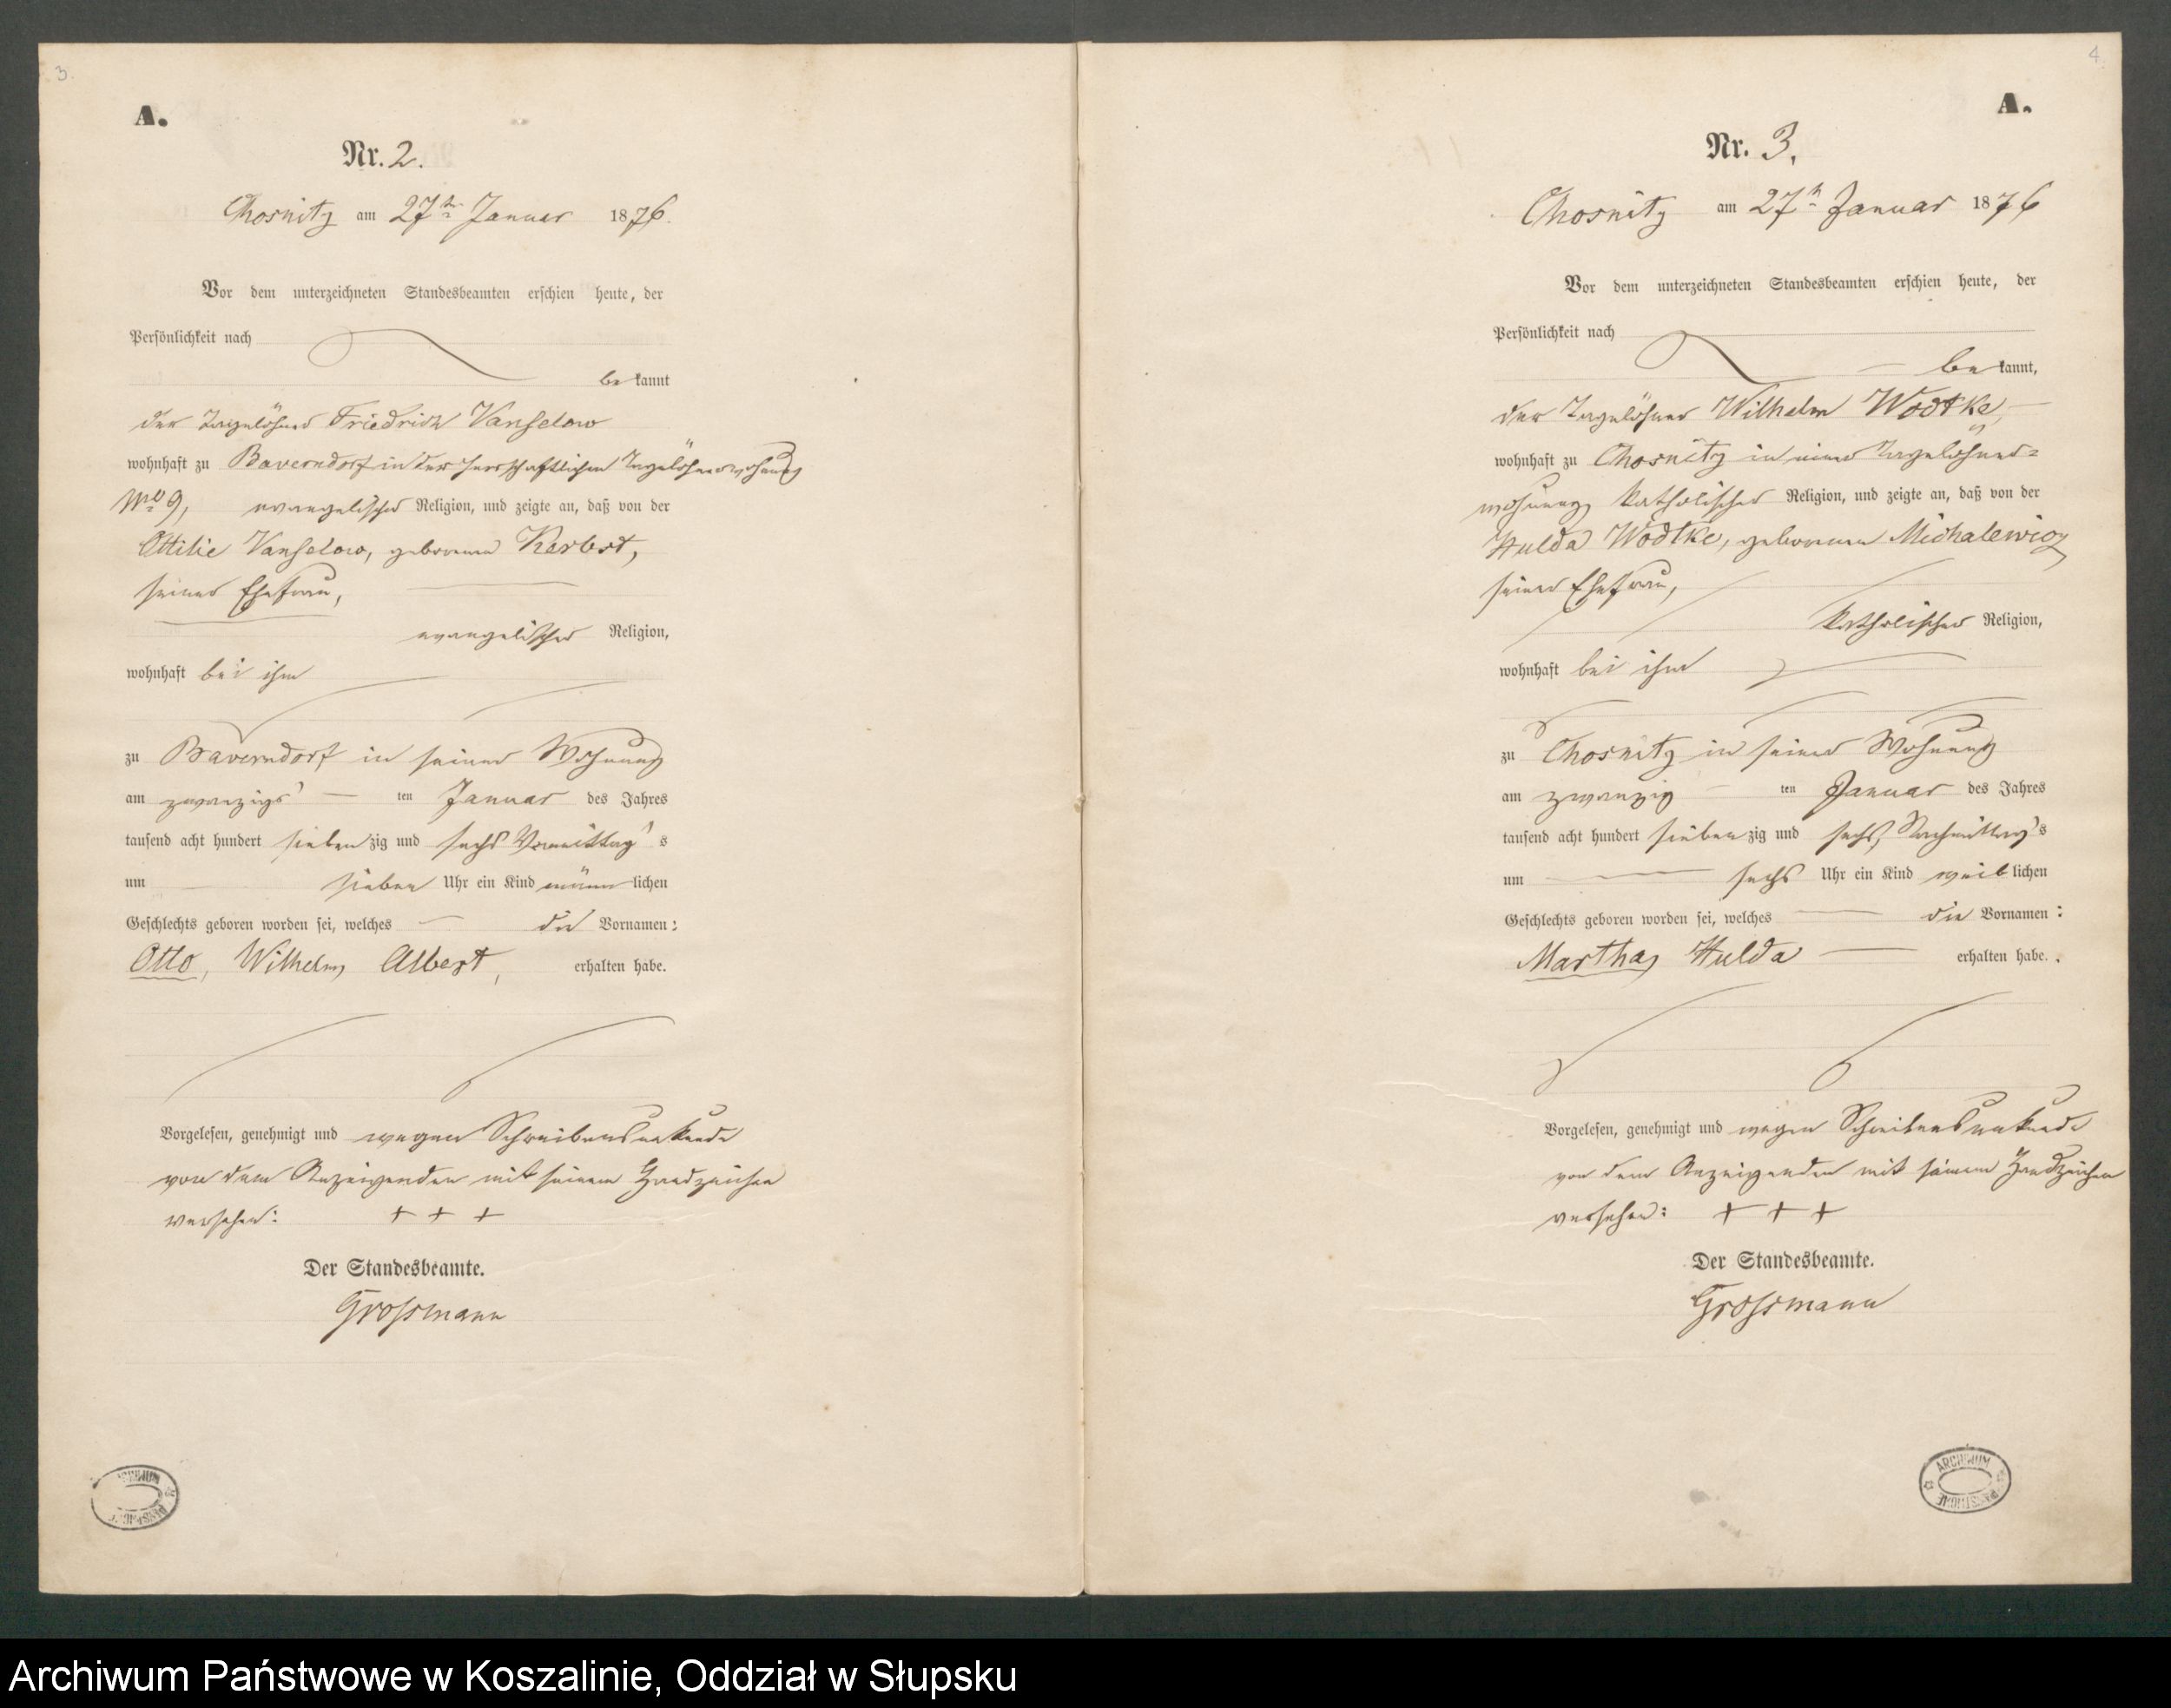 3.
A.
Nr. 2.
Chosnitz am 27ten Januar 1876.
Vor dem unterzeichneten Standesbeamten erschien heute, der
Persönlichkeit nach
bekannt
der Tagelöhner Friedrich Vanselow
wohnhaft zu Baverndorf in der herrschaftlichen Tagelöhnerwohnung
No 9, evangelischer Religion, und zeigte an, daß von der
Ottilie Vanselow, geborenen Kerbst,
seiner Ehefrau,
evangelischer Religion,
wohnhaft bei ihm
zu Baverndorf in seiner Wohnung
am zwanzigs ten Januar des Jahres
tausend acht hundert siebenzig und sechs Vormittags
um sieben Uhr ein Kind männlichen
Geschlechts geboren worden sei, welches die Vornamen:
Otto, Wilhelm, Albert, erhalten habe.
Vorgelesen, genehmigt und wegen Schreibensunkunde
von dem Anzeigenden mit seinem Handzeichen
versehen: + + +
Der Standesbeamte.
Grossmann
ARCHIWUM PAŃSTWOWE
4.
A.
Nr. 3.
Chosnitz am 27ten Januar 1876
Vor dem unterzeichneten Standesbeamten erschien heute, der
Persönlichkeit nach
bekannt,
der Tagelöhner Wilhelm Wodtke,
wohnhaft zu Chosnitz in einer Tagelöhner=
wohnung katholischer Religion, und zeigte an, daß von der
Hulda Wodtke, geborenen Michalewicz
seiner Ehefrau,
katholischer Religion,
wohnhaft bei ihm
zu Chosnitz in seiner Wohnung
am zwanzig ten Januar des Jahres
tausend acht hundert siebenzig und sechs, Nachmittags
um sechs Uhr ein Kind weiblichen
Geschlechts geboren worden sei, welches die Vornamen:
Martha, Hulda erhalten habe.
Vorgelesen, genehmigt und wegen Schreibensunkunde
von dem Anzeigenden mit seinem Handzeichen
versehen: + + +
Der Standesbeamte.
Grossmann
ARCHIWUM PAŃSTWOWE
Archiwum Państwowe w Koszalinie, Oddział w Słupsku